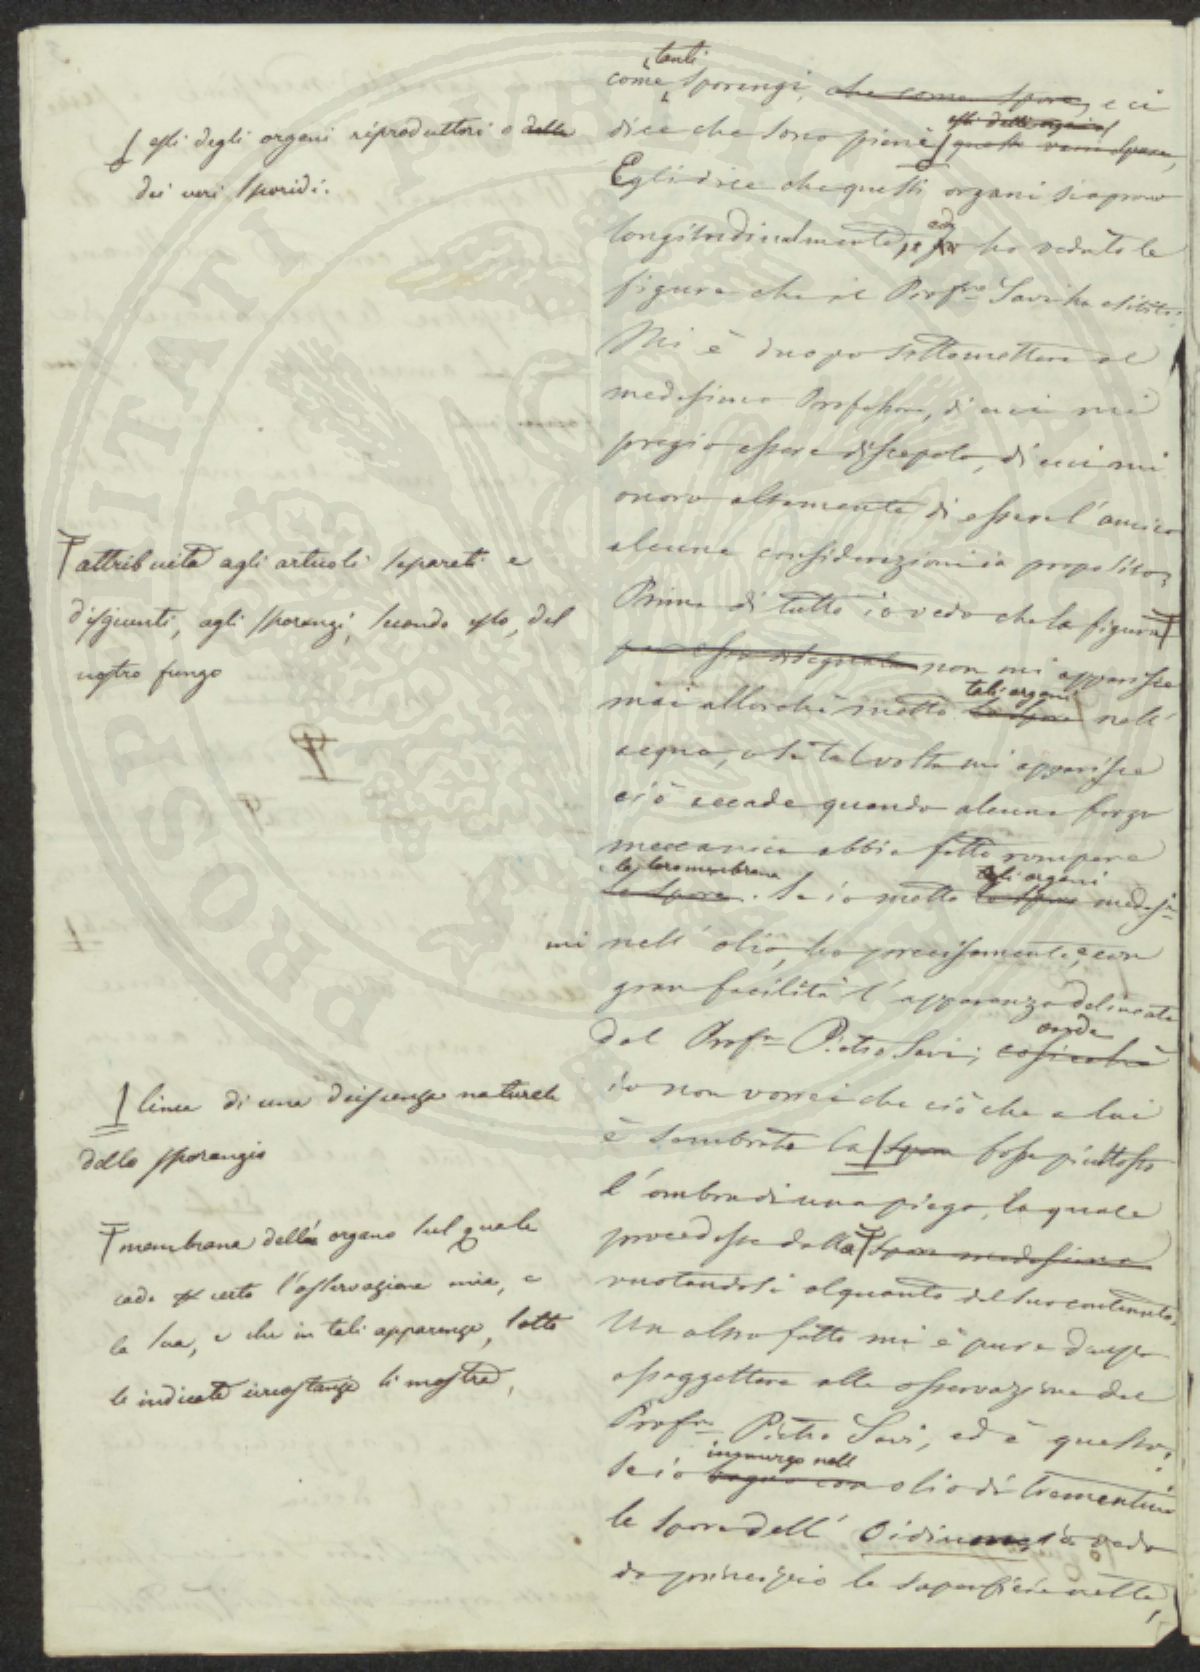 tanti
come sporangi, che come spore, e ci
dice che sono pieni questi veri spore,
Egli dice che questi organi si aprono
longitudinalmente, ed ho veduto le
figure che il Profre Savi ha esibito.
Mi è duopo sottomettere al
medesimo Professore, di cui mi
pregio essere discepolo, di cui mi
onoro altamente di essere l'amico
alcune considerazioni in proposito.
Prima di tutto io vedo che la figura
per esso disegnata non mi apparisce
tali organi
mai allorchè metto le spore nell'
acqua, o se talvolta mi apparisce
ciò accade quando alcuna forza
meccanica abbia fatto rompere
la loro membrana tali organi
le spore. Se io metto le spore medesi
mi nell' olio, ho precisamente, e con
gran facilità l'apparenza delineata
onde
dal Profre Pietro Savi; cosicchè
io non vorrei che ciò che a lui
è sembrato la spora fosse piuttosto
l'ombra di una piega, la quale
procedesse dalla spora medesima
vuotandosi alquanto del suo contenuto.
Un altro fatto mi è pure duopo
assoggettare alla osservazione del
Profre Pietro Savi, ed è questo:
immergo nell
se io bagno con olio di trementina
le spore dell' Oidium, io vedo
da principio la superficie netta,
essi degli organi riproduttori o delle
dei veri sporidi.
attribuita agli articoli separati e
disgiunti, agli sporangi, secondo esso, del
nostro fungo
linea di una deiscenza naturale
dello sporangio
membrana dell' organo sul quale
cade certo l'osservazione mia, e
la sua, e che in tali apparenze, sotto
le indicate circostanze si mostra,